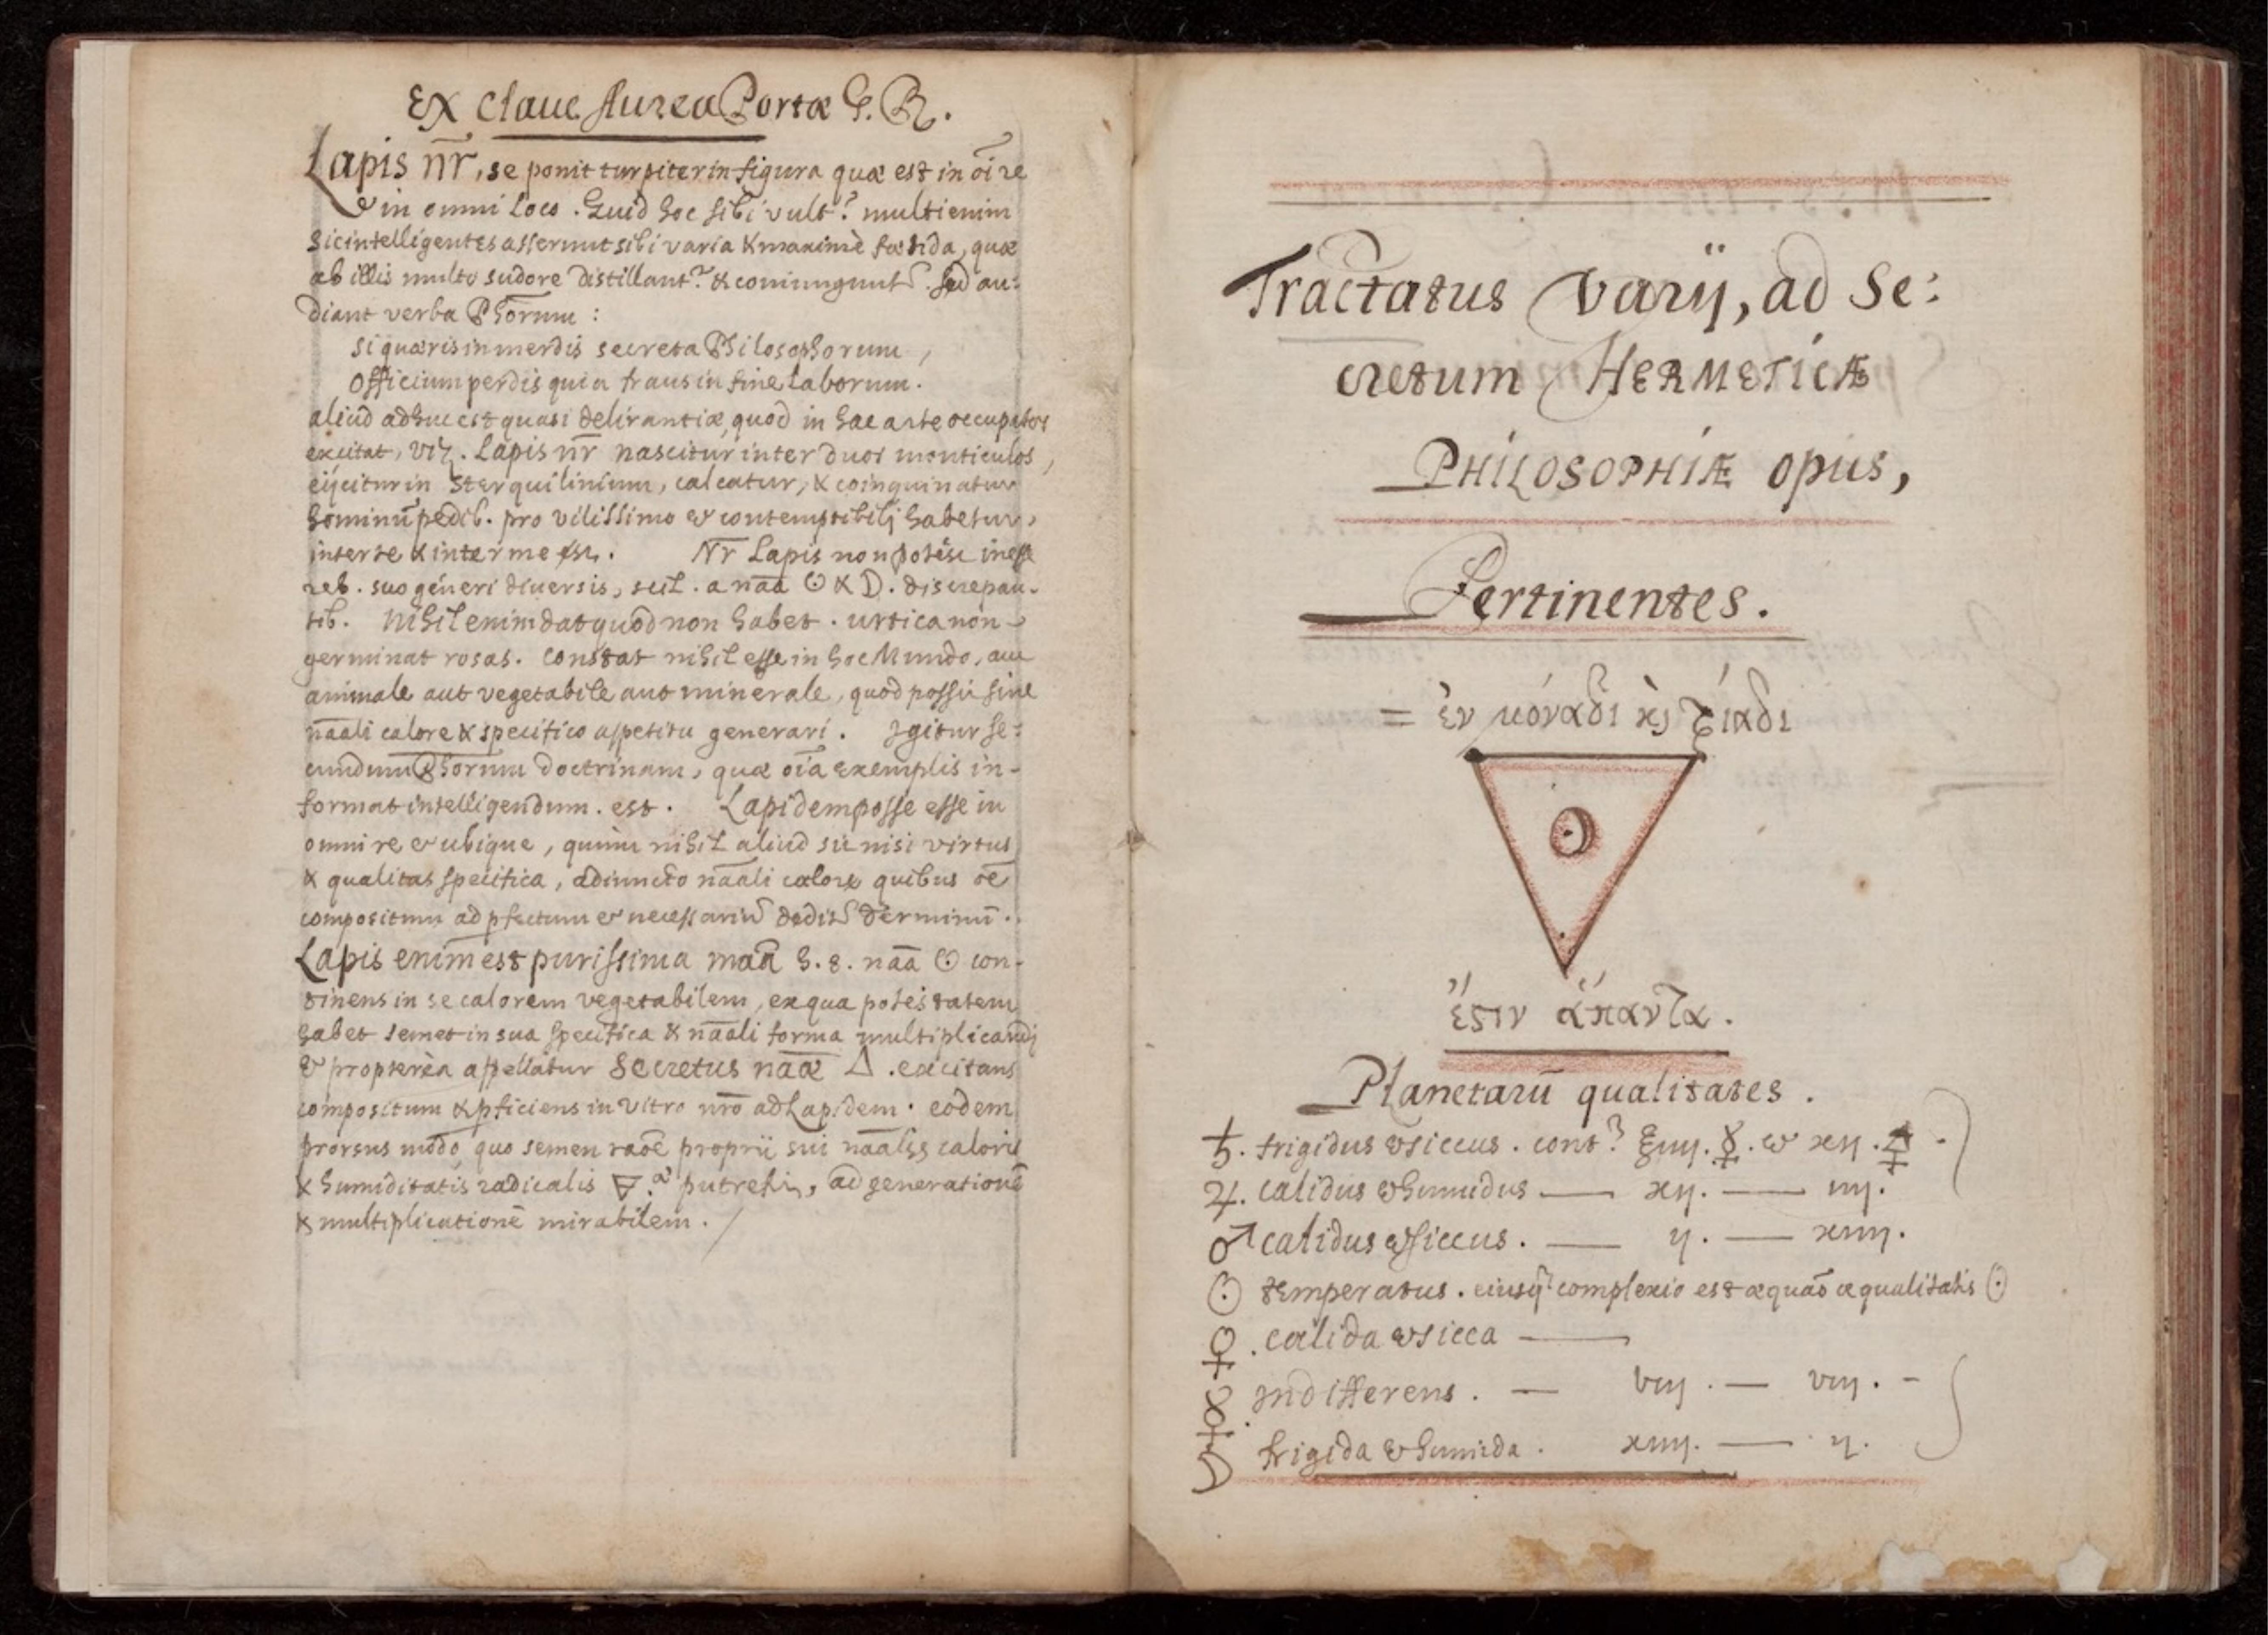 Ex Claue Aurea Portæ G. R.
Lapis nr̄, se ponit turpiter in figura quæ est in oi re
& in omni loco. Quid hoc sibi vult? multi enim
sic intelligentes assermut sibi varia & maximè fœtida, quæ
ab illis multo sudore distillantr & coniungunt. Sed au:
diant verba Phorum:
Si quæris in merdis secreta Philosophorum,
Officium perdis quia fraus in fine laborum.
aliud adhuc est quasi delirantiæ, quod in hac arte occupatos
excitat, viz. Lapis nr̄ nascitur inter duos monticulos,
eijcitur in sterquilinium, calcatur, & coinquinatur
hominū pedib. pro vilissimo & contemptibili habetur,
inter te & inter me est. Nr̄ Lapis non potest inesse
reb. suo generi diversis, scil. a nāa ☉ & ☽. discrepan-
tib. Nihil enim dat quod non habet. urtica non
germinat rosas. Constat nihil esse in hoc Mundo, aut
animale aut vegetabile aut minerale, quod possit sine
nāali calore & specifico appetitu generari. Igitur se:
cundum Phorum doctrinam, quæ oīa exemplis in-
format intelligendum. est. Lapidem posse esse in
omni re & ubique, quum nihil aliud sit nisi virtus
& qualitas specifica, adiuncto nāali calore quibus oē
compositum ad pfectum & necessariū terminū.
Lapis enim est purissima māa h. e. nāa ☉ con-
tinens in se calorem vegetabilem, ex qua potestatem
habet semet in sua specifica & nāali forma multiplicandi
& propterèa appellatur Secretus nāæ △. excitans
compositum & pficiens in vitro nr̄o ad Lapidem. eodem
prorsus modo quo semen raōe proprii sui nāalis caloris
& humiditatis radicalis 🜃.a putrefit, ad generationē
& multiplicationē mirabilem.
Tractatus varij, ad Se:
cretum HERMETICÆ
PHILOSOPHIÆ opus,
Pertinentes.
= ἐν μόναδι κὶ τρίαδι
ἔςιν ἅπαντα.
Planetarū qualitates.
♄. frigidus & siccus. cont. ☿. & xij. ♀.
♃. calidus & humidus — xij. — iiij.
♂ calidus & siccus. — ij. — xiiij.
☉ temperatus. eiusq. complexio est æquaō æqualitatis ☉
♀. calida & sicca —
☿. Indifferens. — viij. — viij. -
☽ frigida & humida. xiiij. — ij.